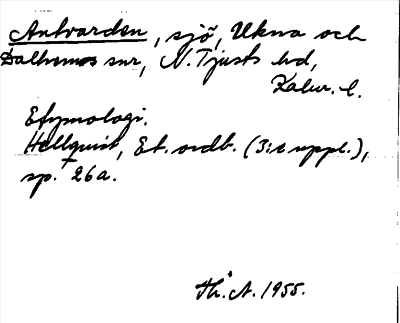 Antvarden, sjö, Ukna och
Dalhems snr, N. Tjusts hd,
Kalm. l.
Etymologi.
Hellquist, Et. ordb. (3:e uppl.),
sp. 26a.
Th. A. 1955.